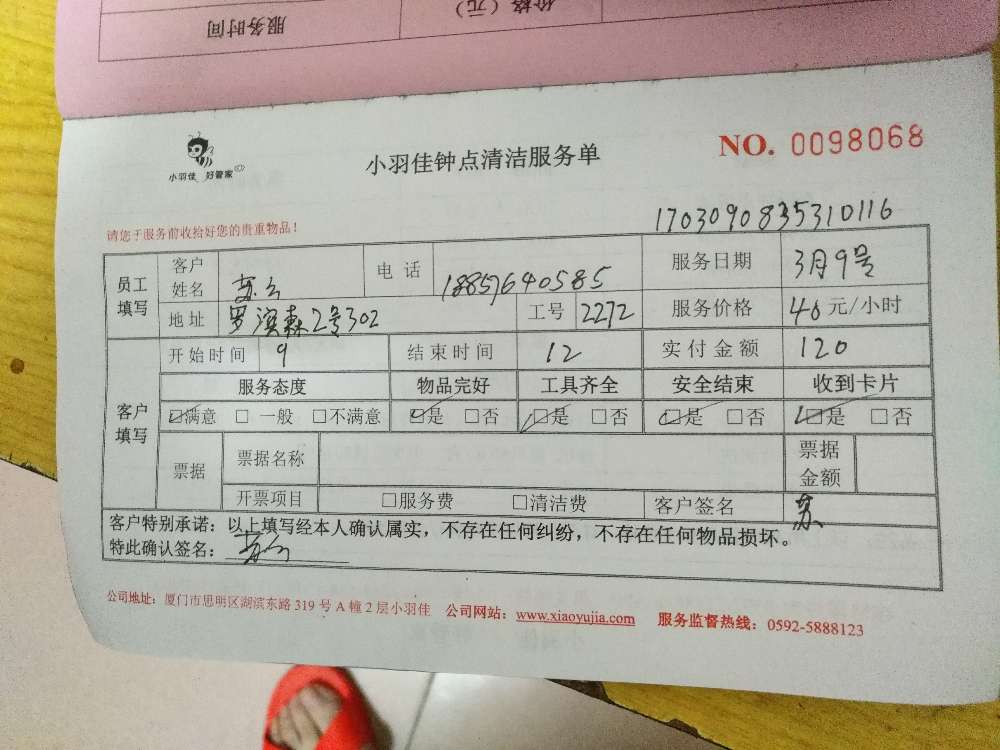 服务时间 价格（元）
小羽佳 好管家
小羽佳钟点清洁服务单
NO. 0098068
请您于服务前收拾好您的贵重物品！
1703090835310116
员工填写 客户姓名 苏 电话 18857640585 服务日期 3月9号
地址 罗滨森2号302 工号 2272 服务价格 40元/小时
客户填写 开始时间 9 结束时间 12 实付金额 120
服务态度 物品完好 工具齐全 安全结束 收到卡片
☑满意 □一般 □不满意 ☑是 □否 ☑是 □否 ☑是 □否 ☑是 □否
票据 票据名称 票据金额
开票项目 □服务费 □清洁费 客户签名 苏
客户特别承诺：以上填写经本人确认属实，不存在任何纠纷，不存在任何物品损坏。
特此确认签名：
公司地址：厦门市思明区湖滨东路 319 号 A 幢 2 层小羽佳 公司网站：www.xiaoyujia.com 服务监督热线：0592-5888123